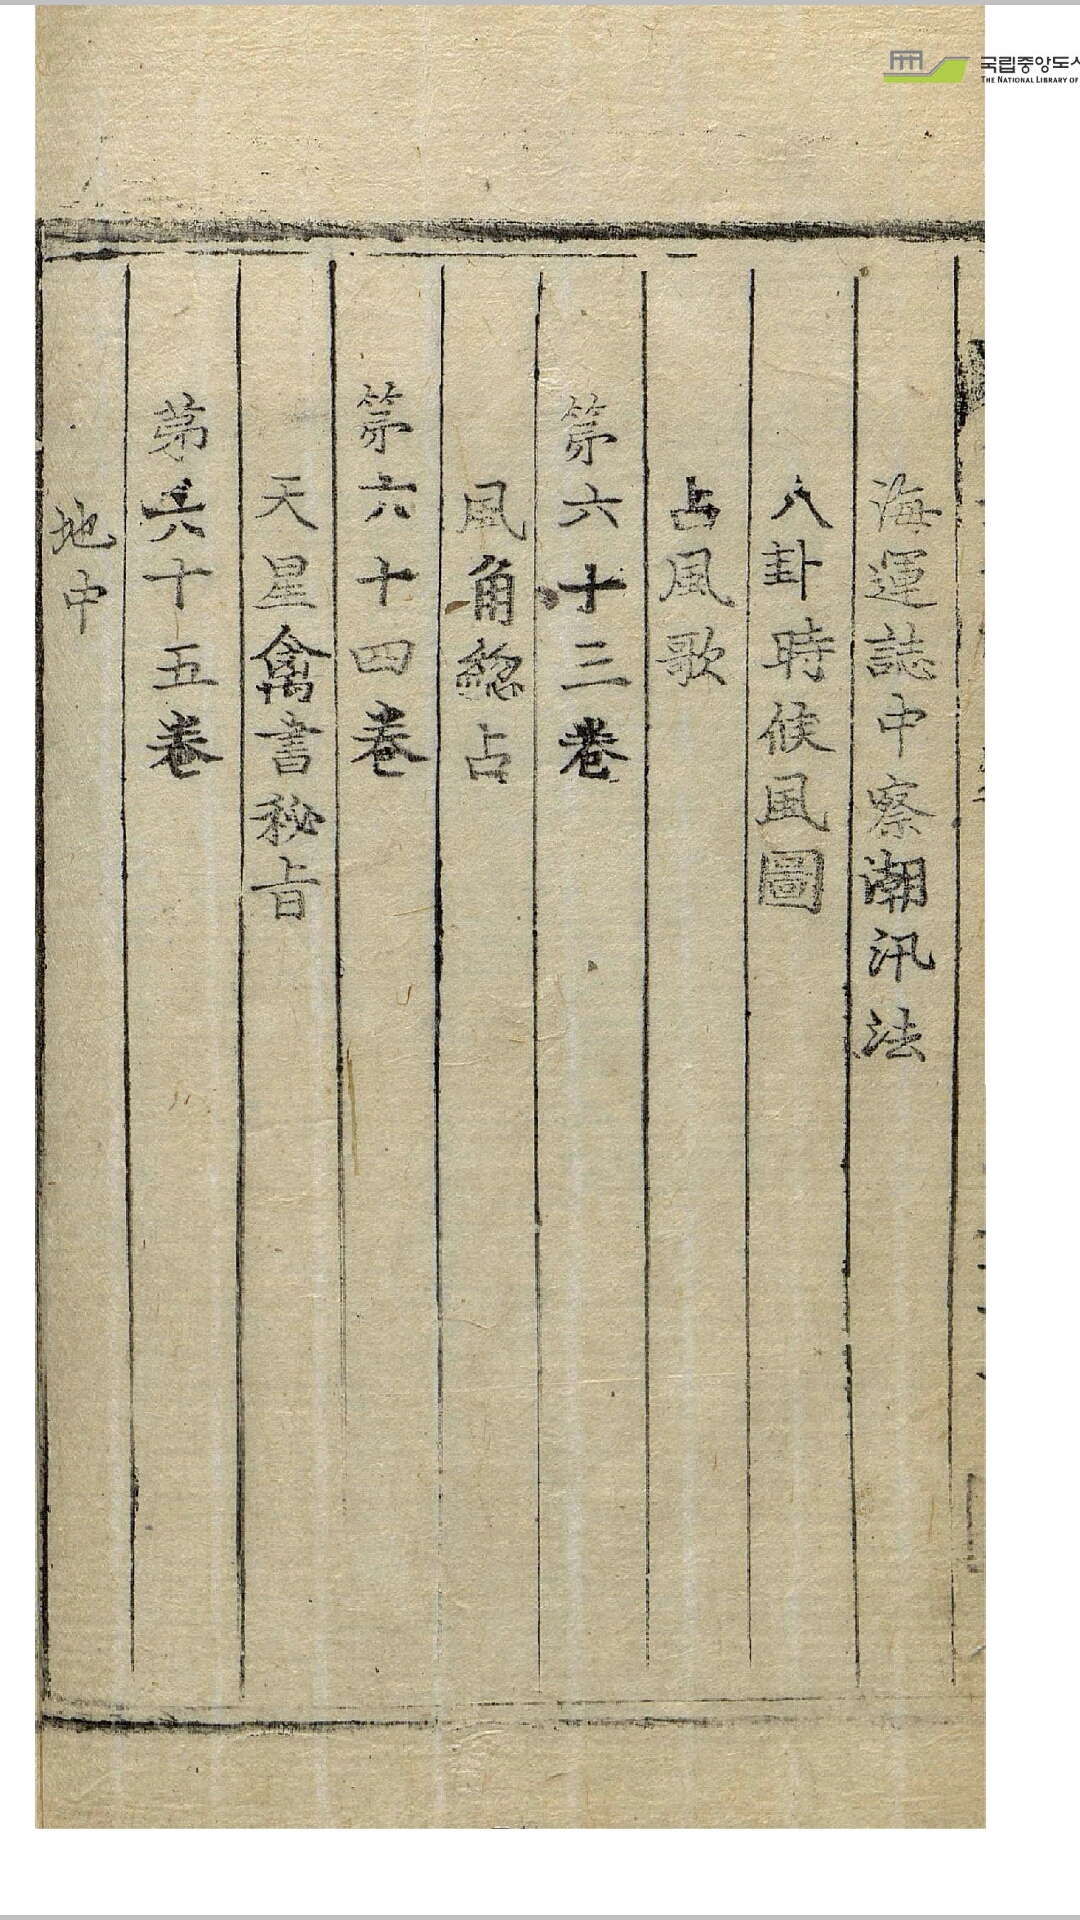 海運誌中察潮汛法
八卦時候風圖
占風歌
第六十三卷
風角總占
第六十四卷
天星禽書秘旨
第六十五卷
地中
국립중앙도서
THE NATIONAL LIBRARY OF